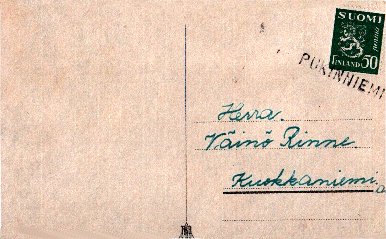 SUOMI
FINLAND 50
PUKINNIEMI
Herra.
Väinö Rinne
Kuokkaniemi.